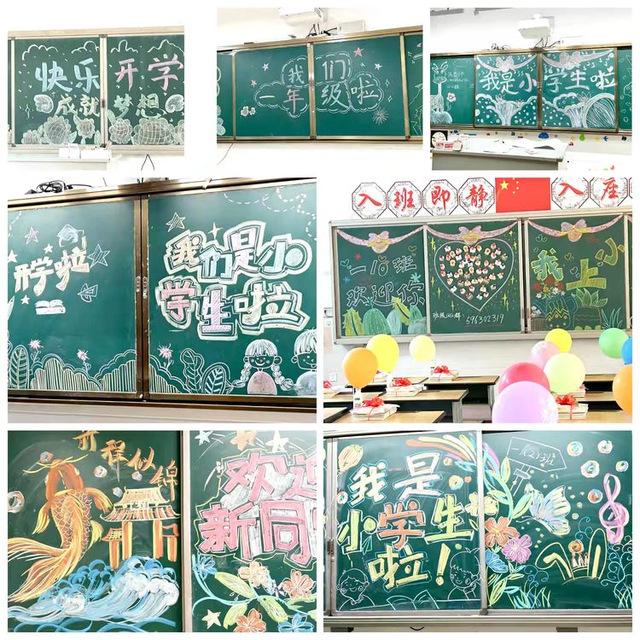 快乐开学
成就梦想
我们
一年级啦
我是小学生啦
开学啦
我们是小
学生啦
入班即静
入座
一18班
欢迎你
596302319
我上小
前程似锦
欢迎
新同
我是
小学生
啦！